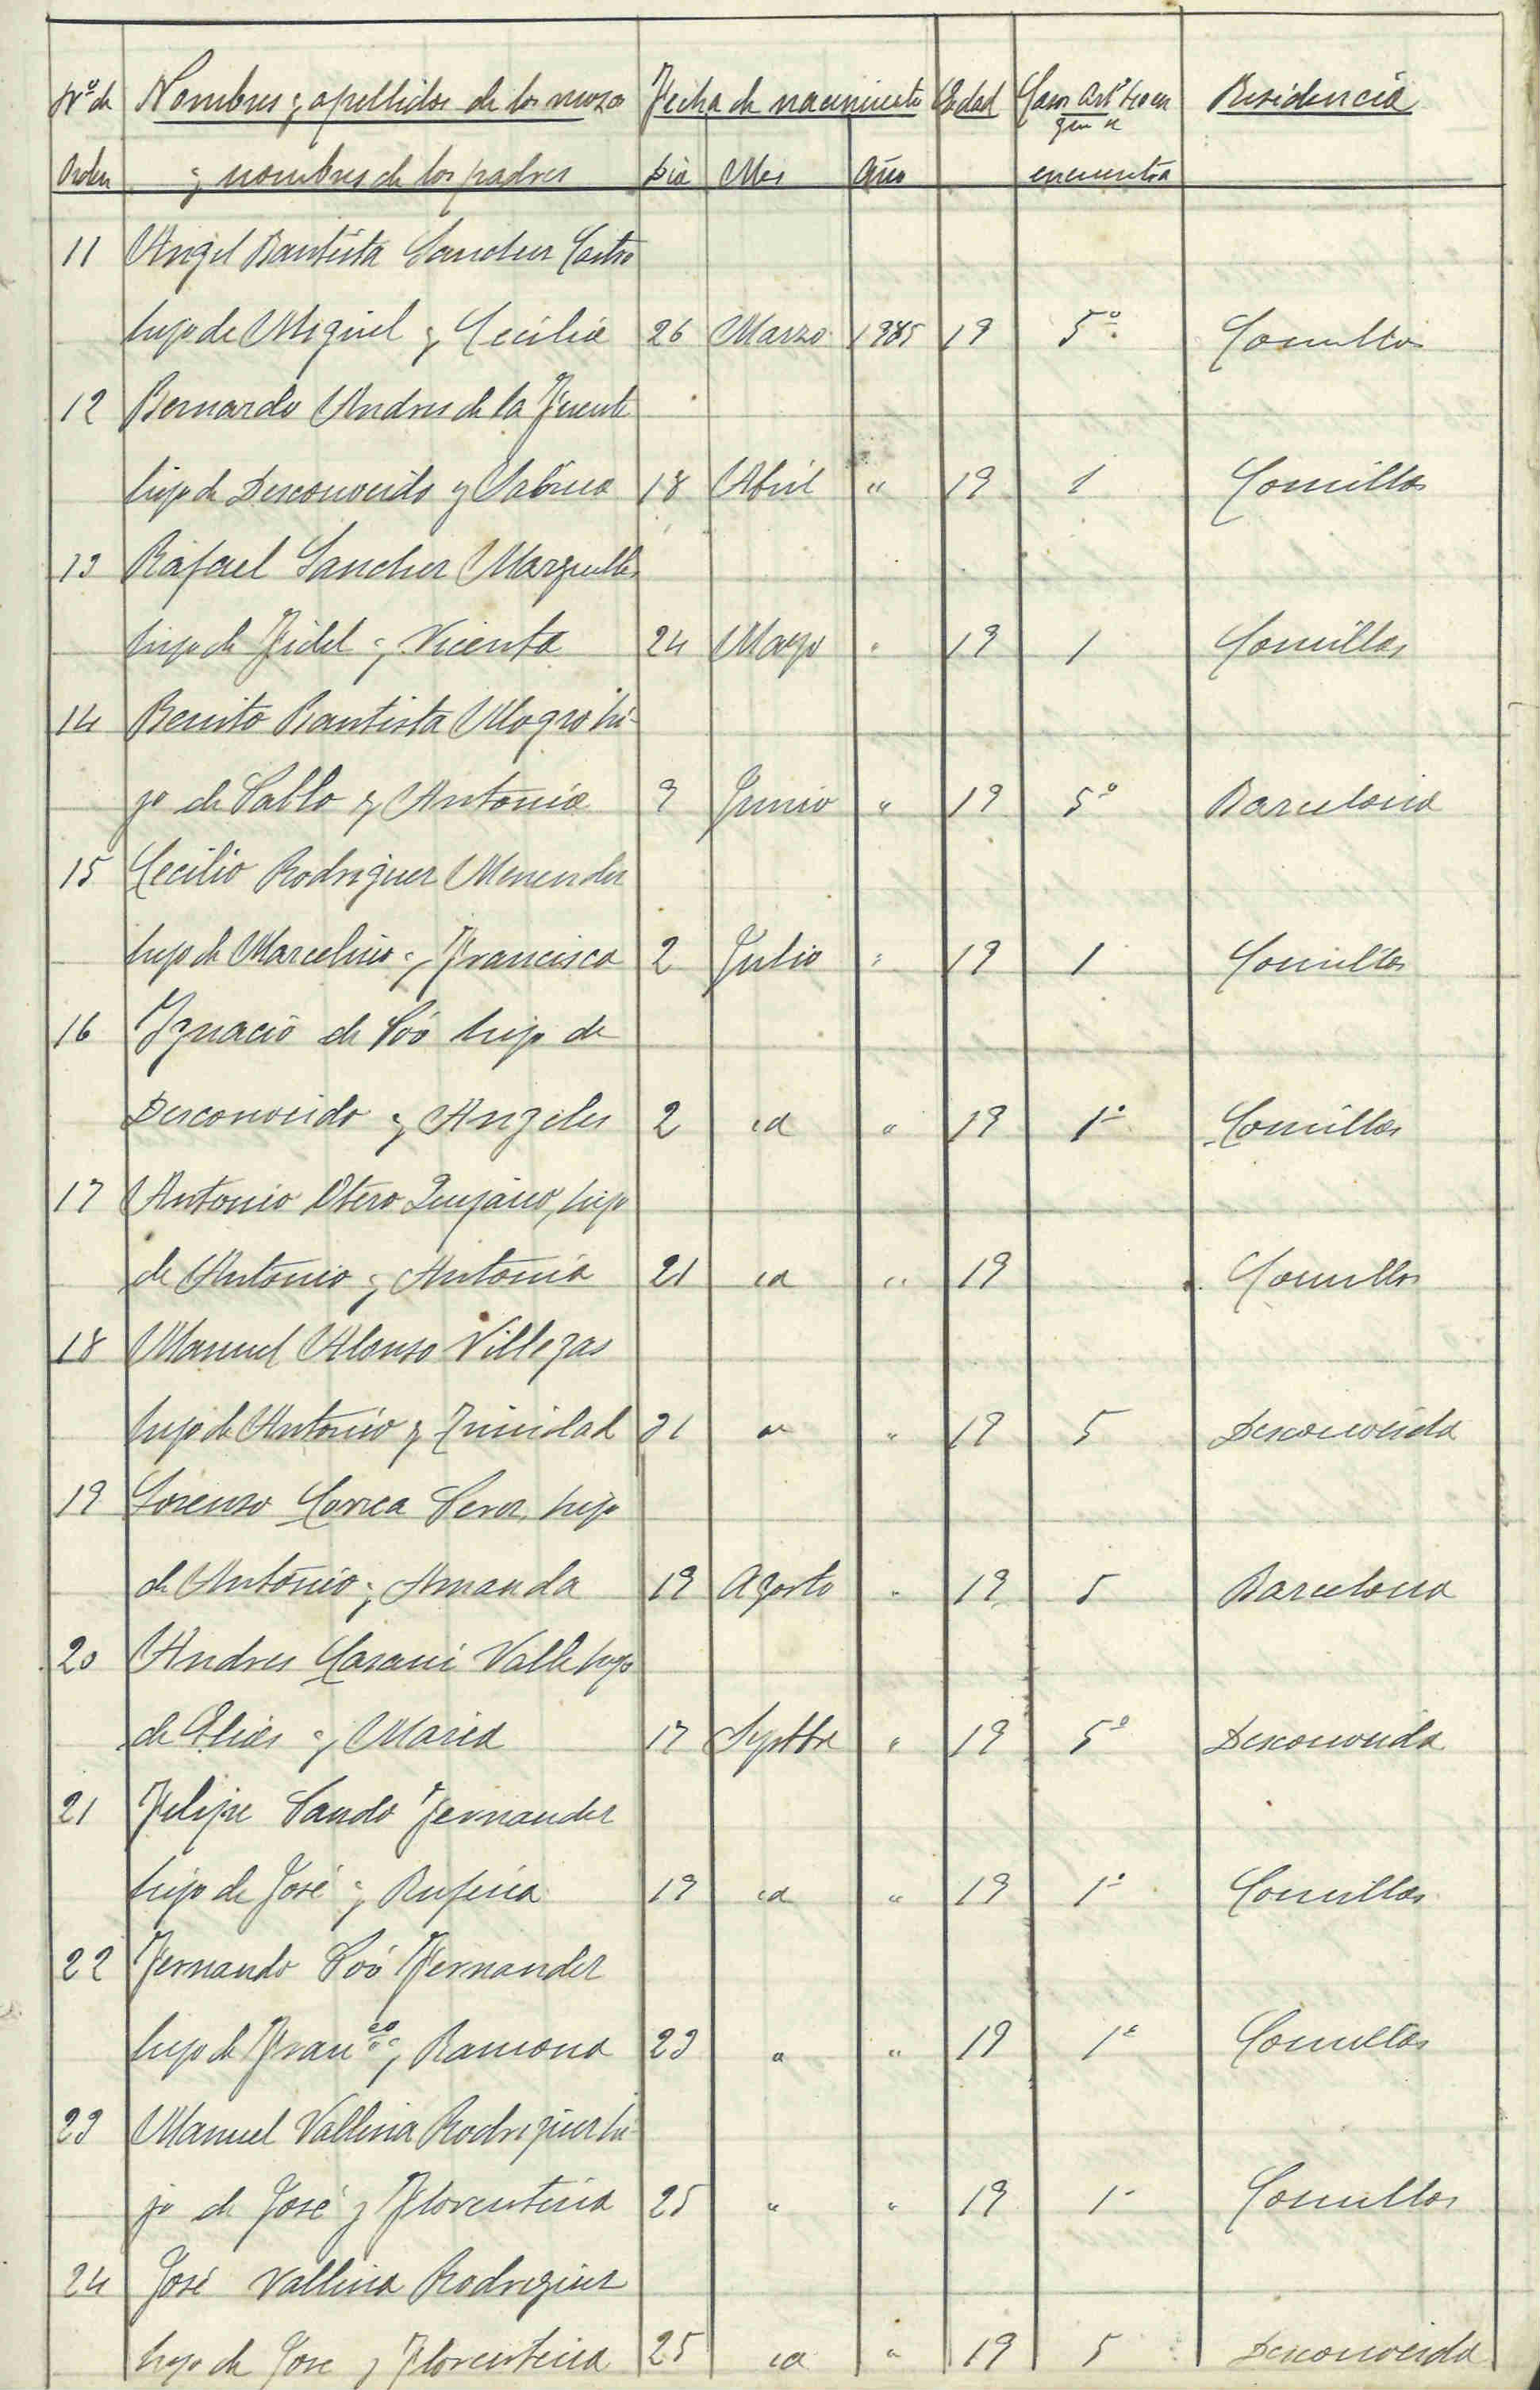 Nº de Nombres y apellidos de los mozos Fecha de nacimiento Edad Caso Artº en que se Residencia
Orden y nombres de los padres Dia Mes Año encuentra
11 Angel Bautista Sanchez Castro
hijo de Miguel y Cecilia 26 Marzo 1985 19 5º Comillas
12 Bernardo Andres de la Fuente
hijo de Desconocido y Sabina 18 Abril " 19 1 Comillas
13 Rafael Sanchez
hijo de Fidel y Vicenta 24 Mayo " 19 1 Comillas
14 Benito Bautista Mogro hi-
jo de Pablo y Antonia 9 Junio " 19 5º Barcelona
15 Cecilio Rodriguez Menendez
hijo de Marcelino y Francisca 2 Julio " 19 1 Comillas
16 Ygnacio de Póo hijo de
Desconocido y Angeles 2 id " 19 1º Comillas
17 Antonio Otero Quijano, hijo
de Antonio y Antonia 21 id " 19 Comillas
18 Manuel Alonso Villegas
hijo de Antonio y Trinidad 31 " " 19 5 Desconocida
19 Lorenzo Correa hijo
de Antonio y Amanda 19 Agosto " 19 5 Barcelona
20 Andres Casani Valle hijo
de Elias y Maria 17 Sepbre " 19 5º Desconocida
21 Felipe Pando Fernandez
hijo de José y Rufina 19 id " 19 1º Comillas
22 Fernando Póo Fernandez
hijo de Franco y Ramona 23 " " 19 1º Comillas
23 Manuel Vallina Rodriguez hi-
jo de José y Florentina 25 " " 19 1º Comillas
24 José Vallina Rodriguez
hijo de Jose y Florentina 25 id " 19 5 Desconocida